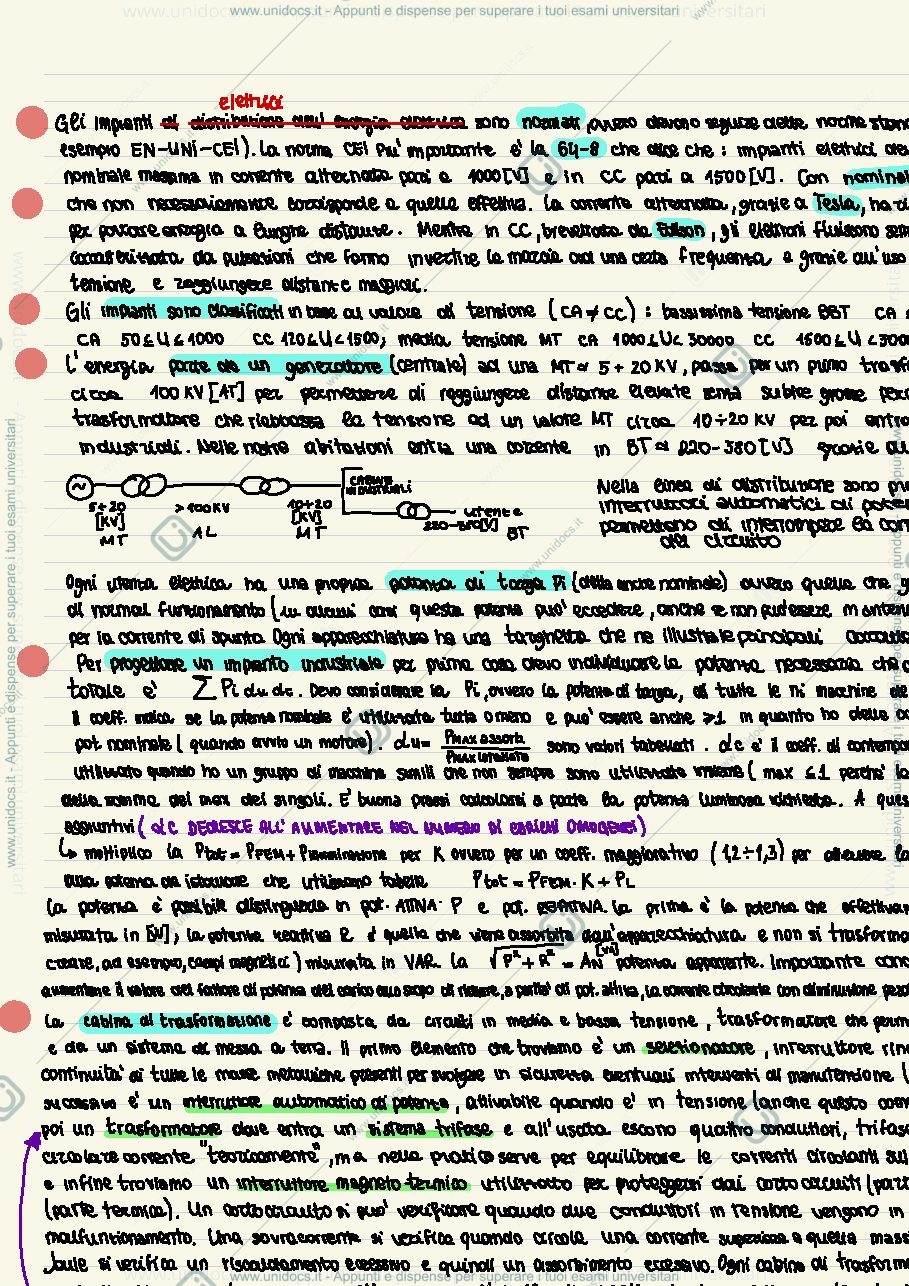 www.unidocs.it - Appunti e dispense per superare i tuoi esami universitari
elettrici
Gli impianti di distribuzione dell'energia elettrica sono normati, ovvero devono seguire delle norme
esempio EN-UNI-CEI). La norma CEI più importante è la 64-8 che dice che: impianti elettrici
nominale massima in corrente alternata pari a 1000[V] e in CC pari a 1500[V]. Con
che non necessariamente corrisponde a quella effettiva. La corrente alternata, grazie a Tesla, ha
per portare energia a lunghe distanze. Mentre in CC, brevettata da Edison, gli elettroni fluiscono
caratterizzata da pulsazioni che fanno invertire la marcia ad una certa frequenza e grazie all'uso
tensione e raggiungere distante maggiori.
Gli impianti sono classificati in base al valore di tensione (CA≠CC): bassissima tensione BBT CA
CA 50≤U≤1000 CC 120≤U≤1500; media tensione MT CA 1000≤U≤30000 CC
L'energia parte da un generatore (centrale) ad una MT≃ 5÷20 KV, passa per un primo
circa 100 KV [AT] per permettere di raggiungere distanze elevate senza subire grosse
trasformatore che riabbassa la tensione ad un valore MT circa 10÷20 KV per poi
industriali. Nelle nostre abitazioni entra una corrente in BT≃ 220-380[V] grazie
CABINE
INDUSTRIALI
utente
5÷20
[KV]
MT
>100KV
AL
10÷20
[KV]
MT
220-380[V]
BT
Nella linea di distribuzione sono
interruttori automatici di
permettono di interrompere la
del circuito
Ogni utenza elettrica ha una propria potenza di targa Pi (detta anche nominale) ovvero quella che
di normal funzionamento (in alcuni casi questa potenza può eccedere, anche se non può essere
per la corrente di spunto. Ogni apparecchiatura ha una targhetta che ne illustra le principali
Per progettare un impianto industriale per prima cosa devo individuare la potenza necessaria che
totale è Σ Pi du dc. Devo considerare la Pi, ovvero la potenza di targa, di tutte le ni macchine
Il coeff. indica se la potenza nominale è utilizzata tutta o meno e può essere anche >1 in quanto ho delle
pot. nominale (quando avvio un motore). du= PMAX assorb. / PMAX installata sono valori tabellati. dc è il coeff. di
utilizzato quando ho un gruppo di macchine simili che non sempre sono utilizzate insieme (max ≤1 perché
della somma dei max dei singoli. È buona prassi calcolarsi a parte la potenza luminosa richiesta. A
aggiuntivi (dC DECRESCE ALL'AUMENTARE DEL NUMERO DI CARICHI OMOGENEI)
↳ moltiplico la Ptot=PFEM+Pilluminazione per K ovvero per un coeff. maggiorativo (1,2÷1,3) per
alla potenza da istallare che utilizziamo tabelle Ptot = PFEM·K + PL
La potenza è possibile distinguerla in pot. ATTIVA P e pot. REATTIVA. La prima è la potenza che
misurata in [W]; la potenza reattiva R è quella che viene assorbita dall'apparecchiatura e non si
creare, ad esempio, campi magnetici) misurata in VAR. La √P²+R² = AN [VA] potenza apparente. Importante
aumentare il valore del fattore di potenza del carico allo scopo di ridurre, a parità di pot. attiva, la corrente circolante con diminuzione
La cabina di trasformazione è composta da circuiti in media e bassa tensione, trasformatore che
e da un sistema di messa a terra. Il primo elemento che troviamo è un selezionatore, interruttore
continuità di tutte le masse metalliche presenti per svolgere in sicurezza eventuali interventi di manutenzione (
successivo è un interruttore automatico di potenza, attivabile quando è in tensione (anche questo
poi un trasformatore dove entra un sistema trifase e all'uscita escono quattro conduttori,
circolare corrente "teoricamente", ma nella pratica serve per equilibrare le correnti circolanti
e infine troviamo un interruttore magneto termico utilizzato per proteggersi dai corto circuiti
(parte termica). Un corto circuito si può verificare quando due conduttori in tensione vengono in
malfunzionamento. Una sovracorrente si verifica quando circola una corrente superiore a quella
Joule si verifica un riscaldamento eccessivo e quindi un assorbimento eccessivo. Ogni cabina di
www.unidocs.it - Appunti e dispense per superare i tuoi esami universitari